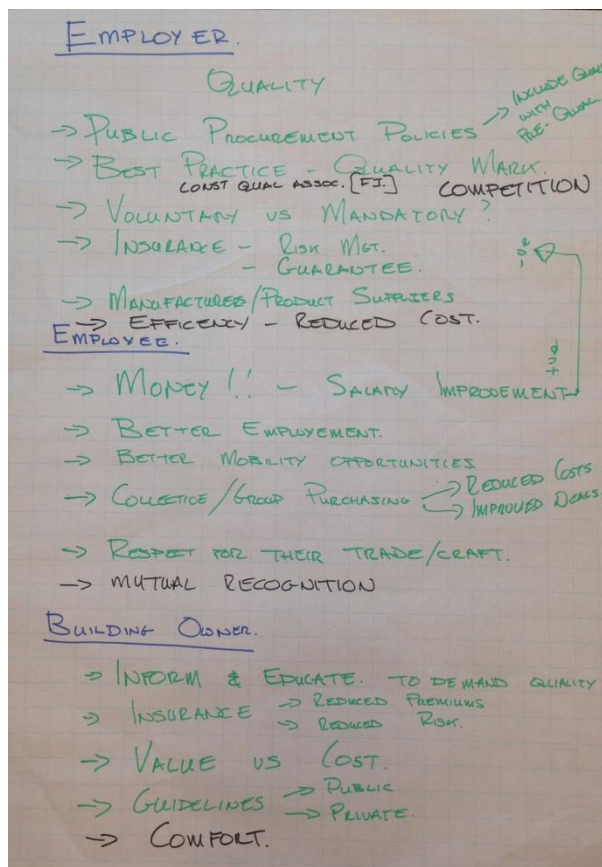 EMPLOYER.
QUALITY
→ PUBLIC PROCUREMENT POLICIES → INCLUDE
WITH
PRE-QUAL
→ BEST PRACTICE - QUALITY MARK.
CONST QUAL ASSOC. [FI.] COMPETITION
→ VOLUNTARY vs MANDATORY?
→ INSURANCE - RISK MGT.
- GUARANTEE.
→ MANUFACTURERS/PRODUCT SUPPLIERS
→ EFFICENCY - REDUCED COST.
EMPLOYEE.
→ MONEY!! - SALARY IMPROVEMENT
→ BETTER EMPLOYEMENT.
→ BETTER MOBILITY OPPORTUNITIES
→ COLLECTIVE/GROUP PURCHASING → REDUCED COSTS
→ IMPROVED DEALS
→ RESPECT FOR THEIR TRADE/CRAFT.
→ MUTUAL RECOGNITION
BUILDING OWNER.
→ INFORM & EDUCATE. TO DEMAND QUALITY
→ INSURANCE → REDUCED PREMIUMS
→ REDUCED RISK.
→ VALUE VS COST.
→ GUIDELINES → PUBLIC
→ PRIVATE.
→ COMFORT.